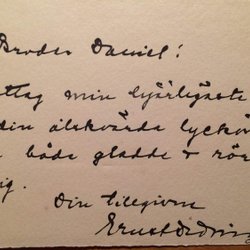 Broder Daniel!
ttag min hjärligaste
din älskvärda lyckö
båda gladde & rör
ig.
Din tillgivne